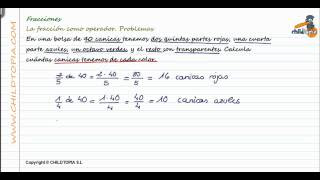 Fracciones
childtopia
La fracción como operador. Problemas
En una bolsa de 40 canicas tenemos dos quintas partes rojas, una cuarta
parte azules, un octavo verdes y el resto son transparentes. Calcula
cuántas canicas tenemos de cada color.
2/5 de 40 = 2·40/5 = 80/5 = 16 canicas rojas
1/4 de 40 = 1·40/4 = 40/4 = 10 canicas azules
WWW.CHILDTOPIA.COM
Copyright © CHILDTOPIA S.L